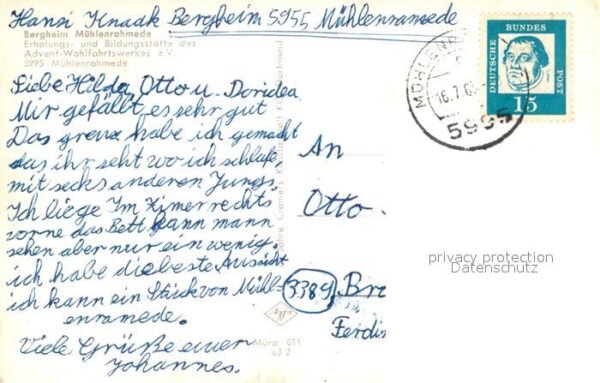 Hansi Knaak Bergheim 5955 Mühlenramede
Bergheim Mühlenrahmede
Erholungs- und Bildungsstätte des
Advent-Wohlfahrtswerkes e.V.
5995 Mühlenrahmede
Liebe Hilda, Otto u. Doridea
Mir gefällt es sehr gut
Das greuz habe ich gemacht
das ihr seht wo ich schlafe,
mit secks anderen Jungs.
Ich liege Im Zimer rechts
vorne das Bett kann mann
sehen aber nur ein wenig.
ich habe die beste Aussicht
ich kann ein Stück von Mühl-
enramede.
Viele Grüße euer
Johannes.
DEUTSCHE BUNDES POST
15
MÜHLENR
16.7.6
5995
An
Otto
3389 Br
Ferdi
privacy protection
Datenschutz
Agfa
Müra 011
63 2